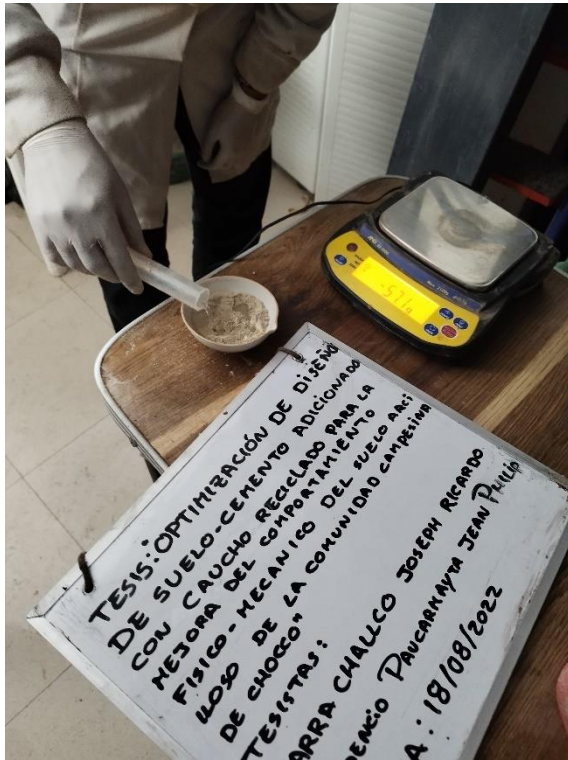 TESIS: "OPTIMIZACIÓN DE DISEÑO
DE SUELO-CEMENTO ADICIONADO
CON CAUCHO RECICLADO PARA LA
MEJORA DEL COMPORTAMIENTO
FÍSICO-MECANICO DEL SUELO ARCI
LLOSO DE LA COMUNIDAD CAMPESINA
DE CHOCCO"
TESISTAS:
ARRA CHALLCO JOSEPH RICARDO
DENCIO PAUCARMAYTA JEAN PHILIP
A: 18/08/2022
-571g